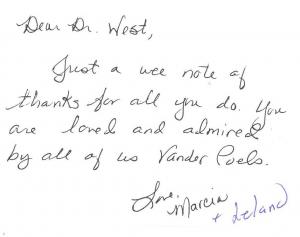 Dear Dr. West,
Just a wee note of
thanks for all you do. You
are loved and admired
by all of us Vander Poels.
Love,
Marcia
+ Leland